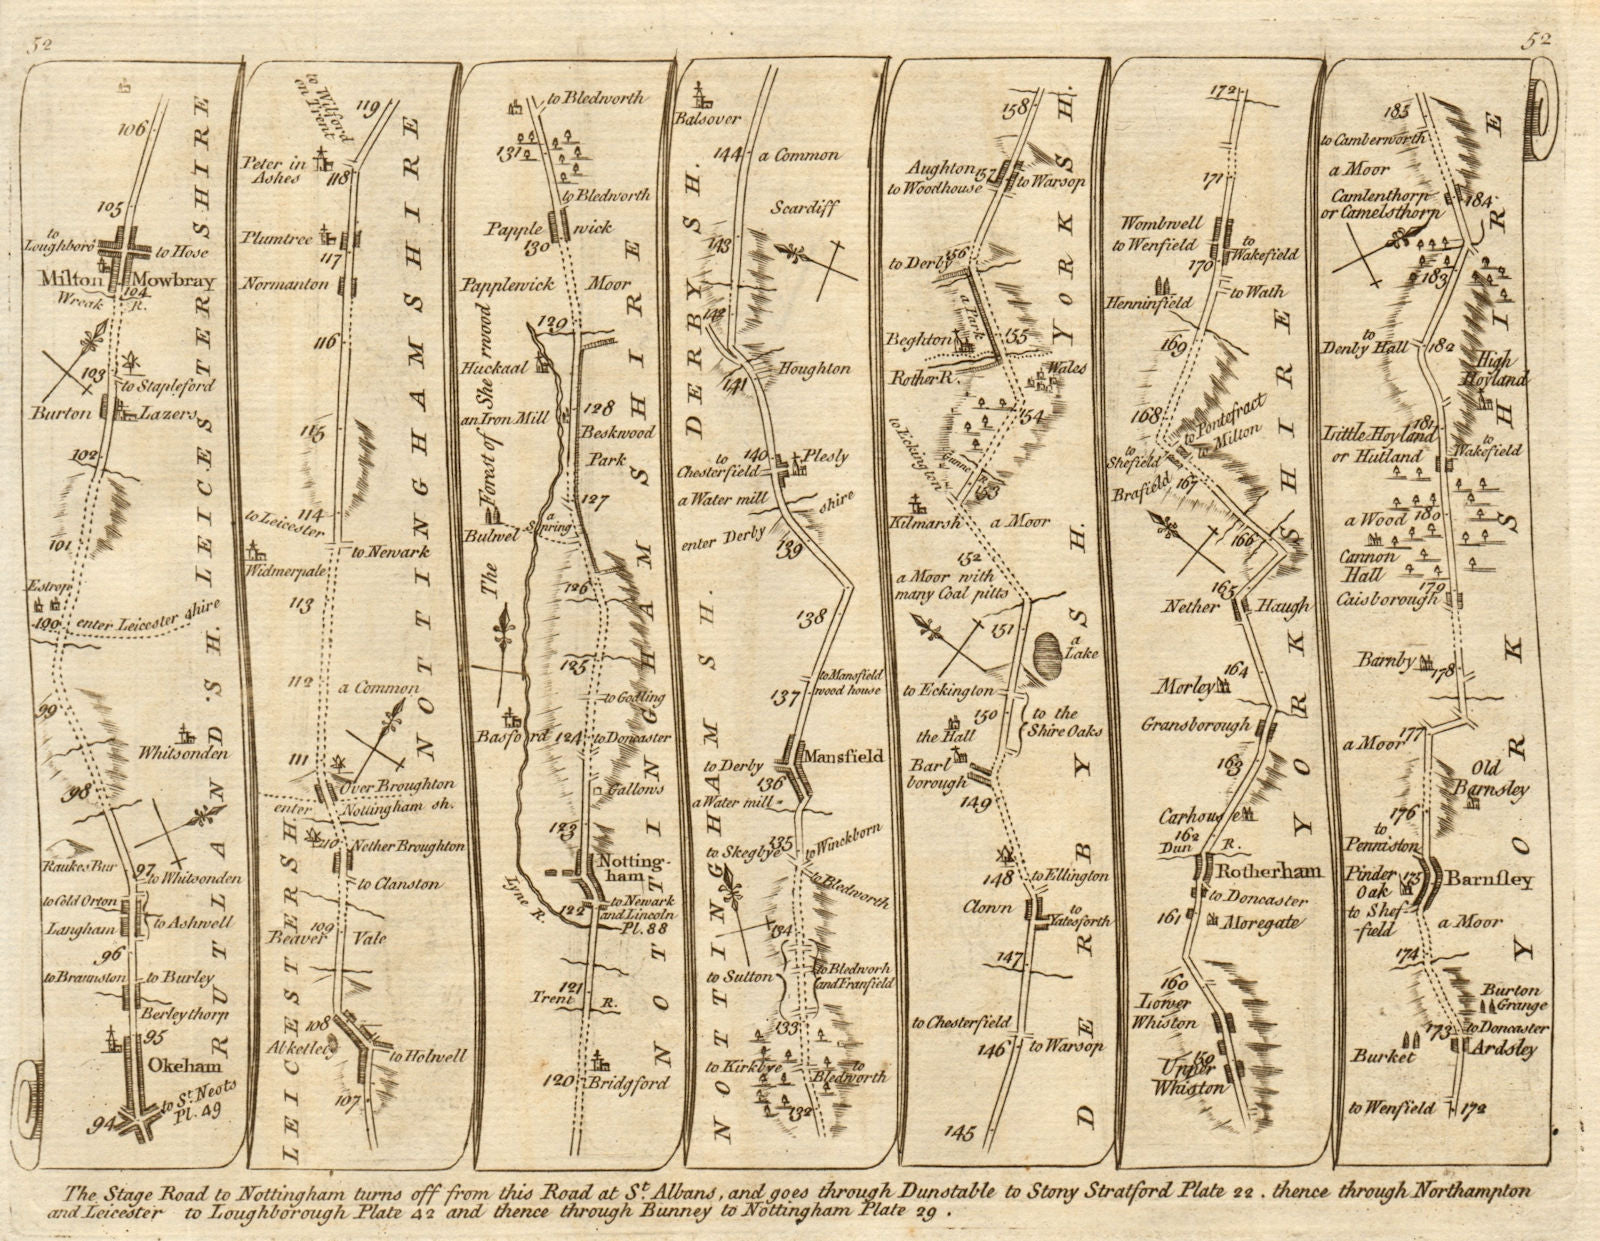 52
52
106
105
to Loughboro
to Hose
Milton Mowbray
104
Wreak R.
103
to Stapleford
Burton Lazers
102
101
Estrop
100
enter Leicester shire
99
98
Whitsonden
Raukes Bur
97
to Whitsonden
to Cold Orton
to Ashwell
Langham
96
to Braunston
to Burley
Berleythorp
95
Okeham
94
to St. Neots
Pl. 49
LEICESTERSHIRE
RUTLAND SH.
to Wilford
on Trent
119
Peter in
Ashes
118
Plumtree
117
Normanton
116
115
114
to Leicester
to Newark
Widmerpale
113
112
a Common
111
Over Broughton
enter Nottingham sh.
110
Nether Broughton
to Clanston
109
Beaver Vale
108
Ab kettleby
to Holwell
107
NOTTINGHAMSHIRE
LEICESTERSH
to Bledworth
131
to Bledworth
Papplewick
130
Papplewick Moor
129
Huckaal
an Iron Mill
128
Beskwood
Park
127
a Spring
Bulwel
126
The Forest of Sherwood
125
to Godling
Basford
124
to Doncaster
Gallows
123
Nottingham
122
to Newark
and Lincoln
Pl. 88
Lyne R.
121
Trent R.
120
Bridgford
NOTTINGHAMSHIRE
Balsover
144
a Common
Scardiff
143
142
141
Houghton
140
to Chesterfield
Plesly
a Water mill
enter Derby shire
139
138
137
to Mansfield
wood house
Mansfield
to Derby
136
a Water mill
135
to Skegbye
to Winckborn
to Bledworth
134
to Sulton
to Bledworh
and Franfield
133
to Kirkbye
to Bledworth
132
DERBYSH.
NOTTINGHAMSH.
158
Aughton
157
to Woodhouse
to Warsop
156
to Derby
a Park
155
Beghton
Rother R.
Wales
154
to Eckington
Gunno R.
153
Kilmarsh
a Moor
152
a Moor with
many Coal pitts
151
a Lake
to Eckington
150
to the
Shire Oaks
the Hall
Barlborough
149
148
to Ellington
Clown
to Yatesforth
147
to Chesterfield
146
to Warsop
145
YORKSH.
DERBYSH.
172
171
Wombwell
to Wenfield
to Wakefield
170
to Wath
Henninfield
169
168
to Pontefract
to Milton
to Shefield
Brafield
167
166
165
Nether Haugh
164
Morley
Gransborough
163
Carhouse
162
Dun R.
Rotherham
to Doncaster
161
Moregate
160
Lower
Whiston
159
Upper
Whiston
YORKSHIRE
185
to Camberworth
a Moor
Camlenthorp
or Camelsthorp
184
183
to Denby Hall
182
High
Hoyland
181
Little Hoyland
or Huiland
to Wakefield
a Wood
180
Cannon
Hall
179
Caisborough
Barnby
178
177
a Moor
Old
Barnsley
176
to Penniston
Pinder
Oak
175
Barnsley
to Sheffield
a Moor
174
Burton
Grange
173
to Doncaster
Burket
Ardsley
to Wenfield
172
YORKSHIRE
The Stage Road to Nottingham turns off from this Road at St. Albans, and goes through Dunstable to Stony Stratford Plate 22. thence through Northampton
and Leicester to Loughborough Plate 42 and thence through Bunney to Nottingham Plate 29.